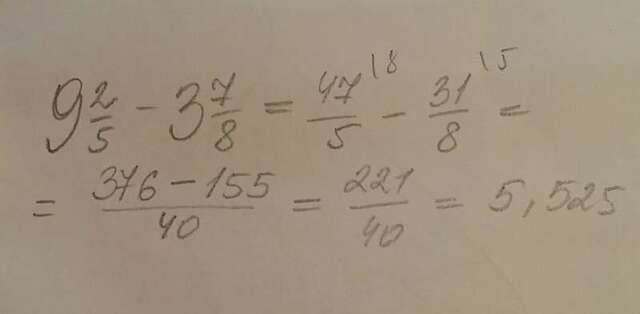 9 2/5 - 3 7/8 = 47/5 \8 - 31/8 \5 =
= 376 - 155/40 = 221/40 = 5,525